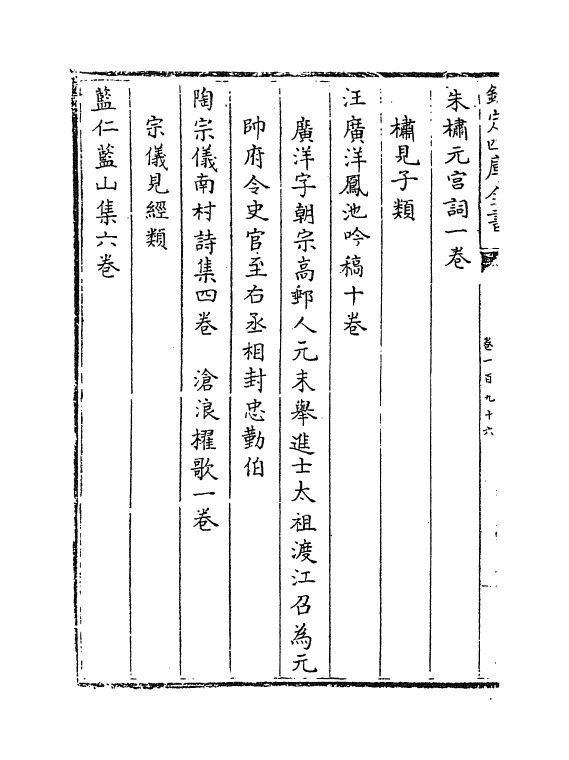 欽定四庫全書
卷一百九十六
朱橚元宫詞一卷
橚見子類
汪廣洋鳳池吟稿十卷
廣洋字朝宗高郵人元末舉進士太祖渡江召為元
帥府令史官至右丞相封忠勤伯
陶宗儀南村詩集四卷　滄浪櫂歌一卷
宗儀見經類
藍仁藍山集六卷